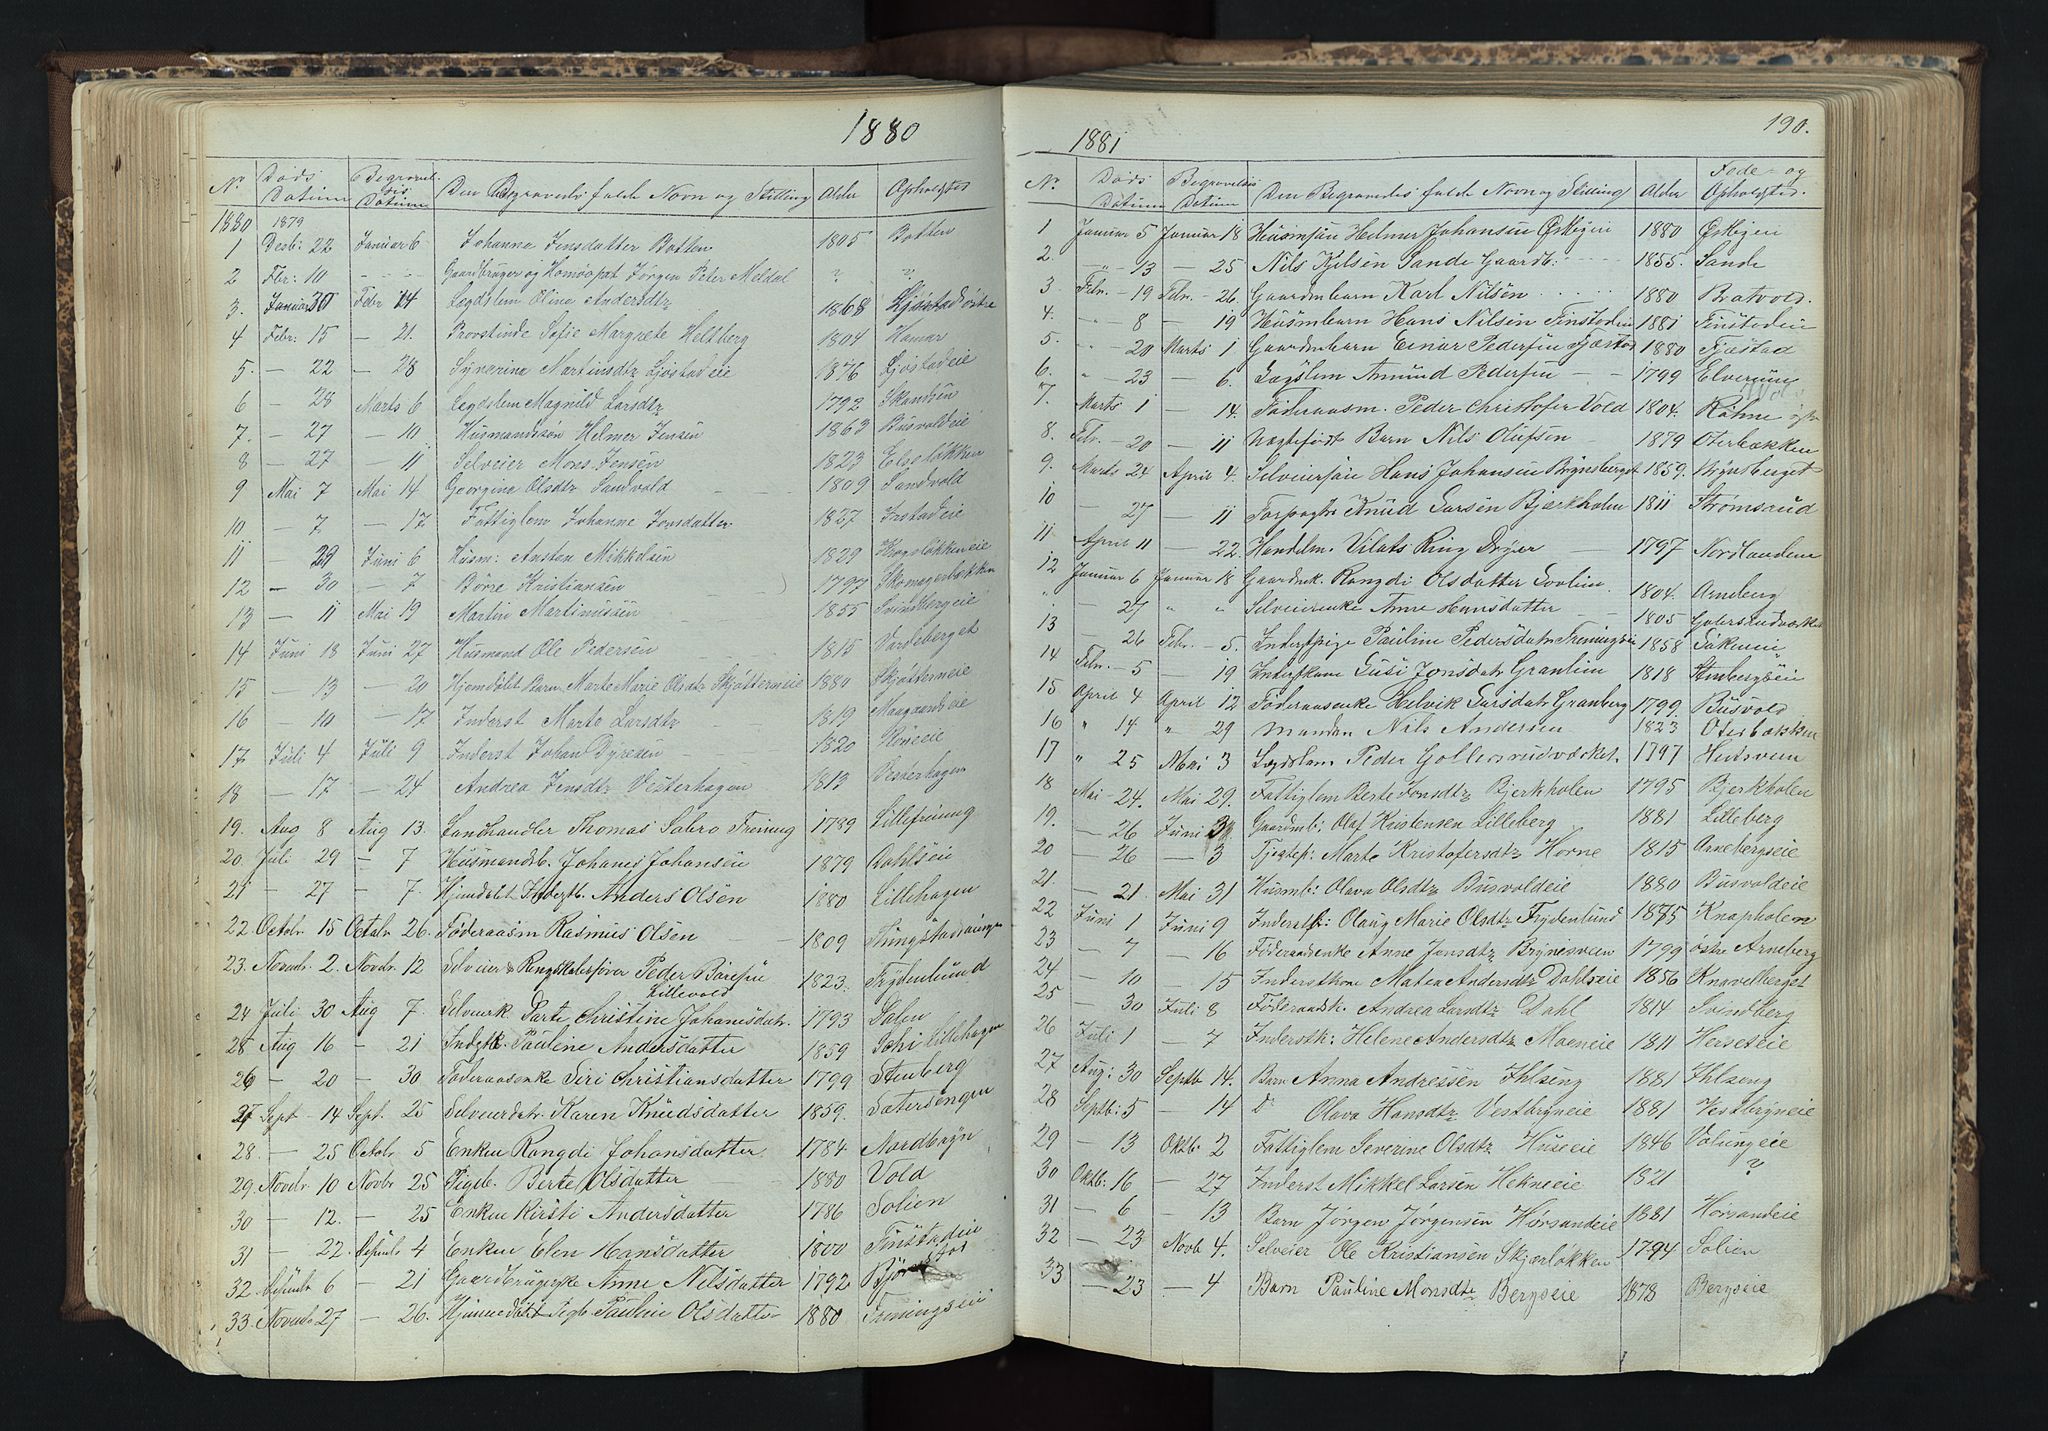 1880
N. Døds Datum Begravelsis Datum Den Begravedes fulde Navn og Stilling Alder Opholdsted
1880 1879
1 Desb: 22 Januar 6 Johanna Jensdatter Botten 1805 Botten
2 Fbr: 10 - - - Gaardbruger og Homöopat Jørgen Peter Meldal ? ?
3. Januar 30 Febr 14 Legdslem Olina Andersdtr 1868
4 Febr: 15 — 21. Provstinde Sofie Margrete Heltberg 1804 Hamar
5. — 22 — 28 Syverine Martinsdtr Ljostadeie 1876 Ljostadeie
6 — 28 Marts 6 Legdslem Magnild Larsdtr 1792 Skandsen
7. — 27 — 10 Husmandssön Helmer Jensen 1863 Busvoldeie
8 — 27 — 11 Selveier Mons Jensen 1823
9 Mai 7 Mai 14 Georgine Olsdtr Sandvold 1809 Sandvold
10 — 7 — 17 Fattiglem Johanne Jonsdatter 1827
11 — 29 Juni 6 Husm: Mikkelsen 1829
12 — 30 — 7 Börre Kristiansen 1797 Skomagerbakken
13 — 11 Mai 19 Martin Martinussen 1855 Svindbergeie
14 Juni 18 Juni 27 Husmand Ole Pedersen 1815 Vardeberget
15 — 13 — 20 Hjemdöbt Barn Marte Marie Olsdtr Skjøttermeie 1880 Skjøttermeie
16 — 10 — 17 Inderst Marte Larsdtr 1819
17 Juli 4 Juli 9 Inderst Johan Dyresen 1820
18 — 17 — 24 Andrea Jensdtr Vesterhagen 1813 Vesterhagen
19. Aug 8 Aug 13. Landhandler Thomas Sabro Frening 1789 Lillefrening
20. Juli 29 — 7 Husmandb. Johanes Johansen 1879 Dahlseie
21 — 27 — 7. Anders Olsen 1880 Lillehagen
22. Octobr 15 Octobr 26. Föderaasm Rasmus Olsen 1809
23. Novbr 2. Novbr 12 Selveier Peder Böresen Lillevold 1823. Frydenlund
24 Juli 30 Aug 7. Selveierk Marte Christine Johanesdatr. 1793 Solen
25 Aug 16 — 21 Pauline Andersdatter 1859 Lillehagen
26 — 20 — 30 Föderaasenke Siri Christiansdatter 1799 Stenberg
27 Sept 14 Sept. 25 Selveierdatr Karen Knudsdatter 1859. Sætersengen
28. — 25 Octobr 5 Enken Rangdi Johansdatter 1784 Nordbryn
29. Novbr 10 Novbr 25 Pigeb. Berte Olsdatter 1880 Vold
30 — 12. — 25 Enken Kirsti Andersdatter 1786 Solien
31 — 22. Desembr 4 Enken Elen Hansdatter 1800 Finstadeie
32. Desembr 6 — 21 Anne Nilsdatter 1792
33. Novbr 27 — 26. Hjemmedöbt Pigb Pauline Olsdatter 1880 Freningseie
190.
1881
N. Døds Datum Begravelsis Datum Den Begravedes fulde Navn og Stilling Alder Føde- og Opholdsted.
1 Januar 5 Januar 18 Husmsön Helmer Johansen Öskjeien 1880 Öskjeien
2. " 13 — 25 Nils Kjelsen Sande Gaardb: 1855. Sande
3 Febr. — 19 Febr. — 26. Gaardmbarn Karl Nilsen 1880 Bratvold.
4. " 8 — 19 Husmbarn Hans Nilsen Finstadeie 1881 Finstadeie
5. " 20 Marts 1 Gaardmbarn Einar Pedersen Fjæstad 1880 Fjæstad
6. " 23 — 6. Lægslem Amund Pedersen 1799 Elverum
7. Marts 1 — 14. Föderaasm. Peder Christofer Vold 1804.
8. Febr. — 20 — 11 Uægtefödt Barn Nils Olufsen 1879 Oterbækken
9. Marts 24 April 4. Selveiersön Hans Johansen Brynsberget 1859. Brynsberget
10 — 27 — 11 Knud Larsen Bjerkholen 1811 Strømsrud
11 April 11 — 22. Handelm. Vilats Ring Dreyer 1797 Nordlandene
12 Januar 6 Januar 18 Gaardmk. Rangdi Olsdatter Svolien 1804. Arneberg
" — 27 " " Selveierenke Anne Hansdatter 1805
13 26 Febr. — 5. Inderstpige Pauline Pedersdatr Freningseie 1858
14 Febr. — 5 — 19 Inderstkone Gusi Jonsdatr Granlien 1818 Stenbergseie
15 April 4 April 12 Föderaasenke Helvik Larsdatr Granberg 1799. Busvold
16 " 14 " 29 Manden Nils Andersen 1823 Oterbækken
17 " 25 Mai 3 Lægdslem Peder Gollersrudværket. 1797
18 Mai — 24. Mai 29. Fattiglem Berte Jonsdtr Bjerkholen 1795 Bjerkholen
19. — 26 Juni 3 Gaardmb: Olaf Kristensen Lilleberg 1881 Lilleberg
20 — 26 — 3 Marte Kristofersdtr Horne 1815 Arnebergseie
21. — 21 Mai 31 Husmb: Olava Olsdtr Busvoldeie 1880 Busvoldeie
22 Juni 1 Juni 9 Olaug Marie Olsdtr Frydenlund 1875 Knapholen
23 — 7 — 16 Föderaadenke Anne Jonsdtr Brynesveen 1799 østre Arneberg
24 10 — 15 Inderstkone Matea Andersdtr Dahlseie 1856 Knavelberget
25 — 30 Juli 8 Föderaadsk. Andrea Larsdtr Dahl 1814 Svindberg
26 Juli 1 — 7 Inderstk: Helene Andersdtr Moeneie 1811 Herseseie
27 Aug: 30 Septb 14. Barn Anna Andressen Ihlseng 1881 Ihlseng
28 Septb: 5 — 14 D Olava Hansdtr Vestbryneie 1881 Vestbryneie
29 — 13 Oktb: 2 Fattiglem Severine Olsdtr Huseeie 1846
30 Oktb: 16 — 27 Inderst Mikkel Larsen Hekneeie 1821 ?
31 — 6 — 13 Barn Jørgen Jørgensen Hörsandeie 1881 Horsandeie
32 — 23 Novb 4. Selveier Ole Kristiansen Skjærløkken 1794 Solien
33 — 23 — 4 Barn Pauline Monsdtr Bergseie 1878 Bergseie